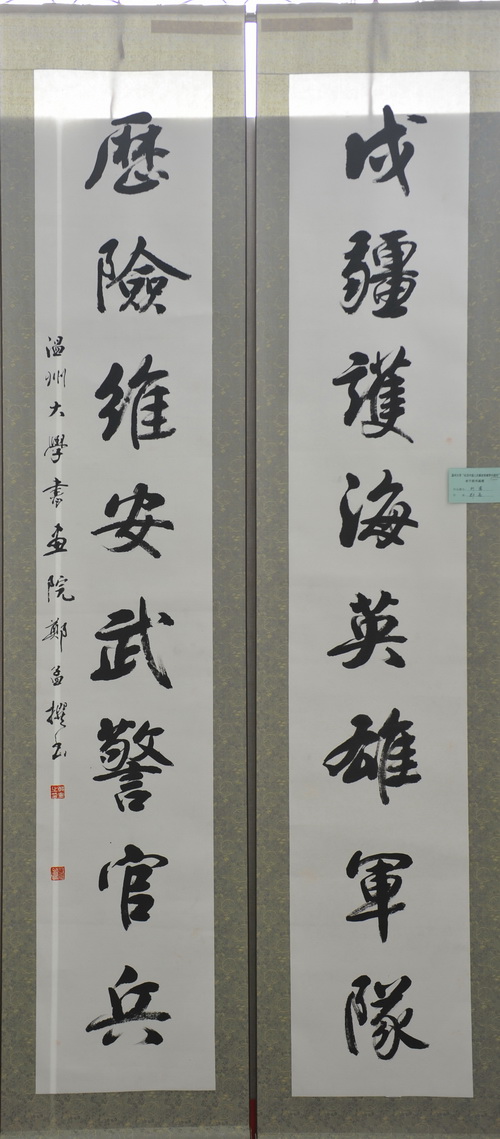 戍疆護海英雄軍隊
歷險維安武警官兵
温州大學書画院鄭孟撰书